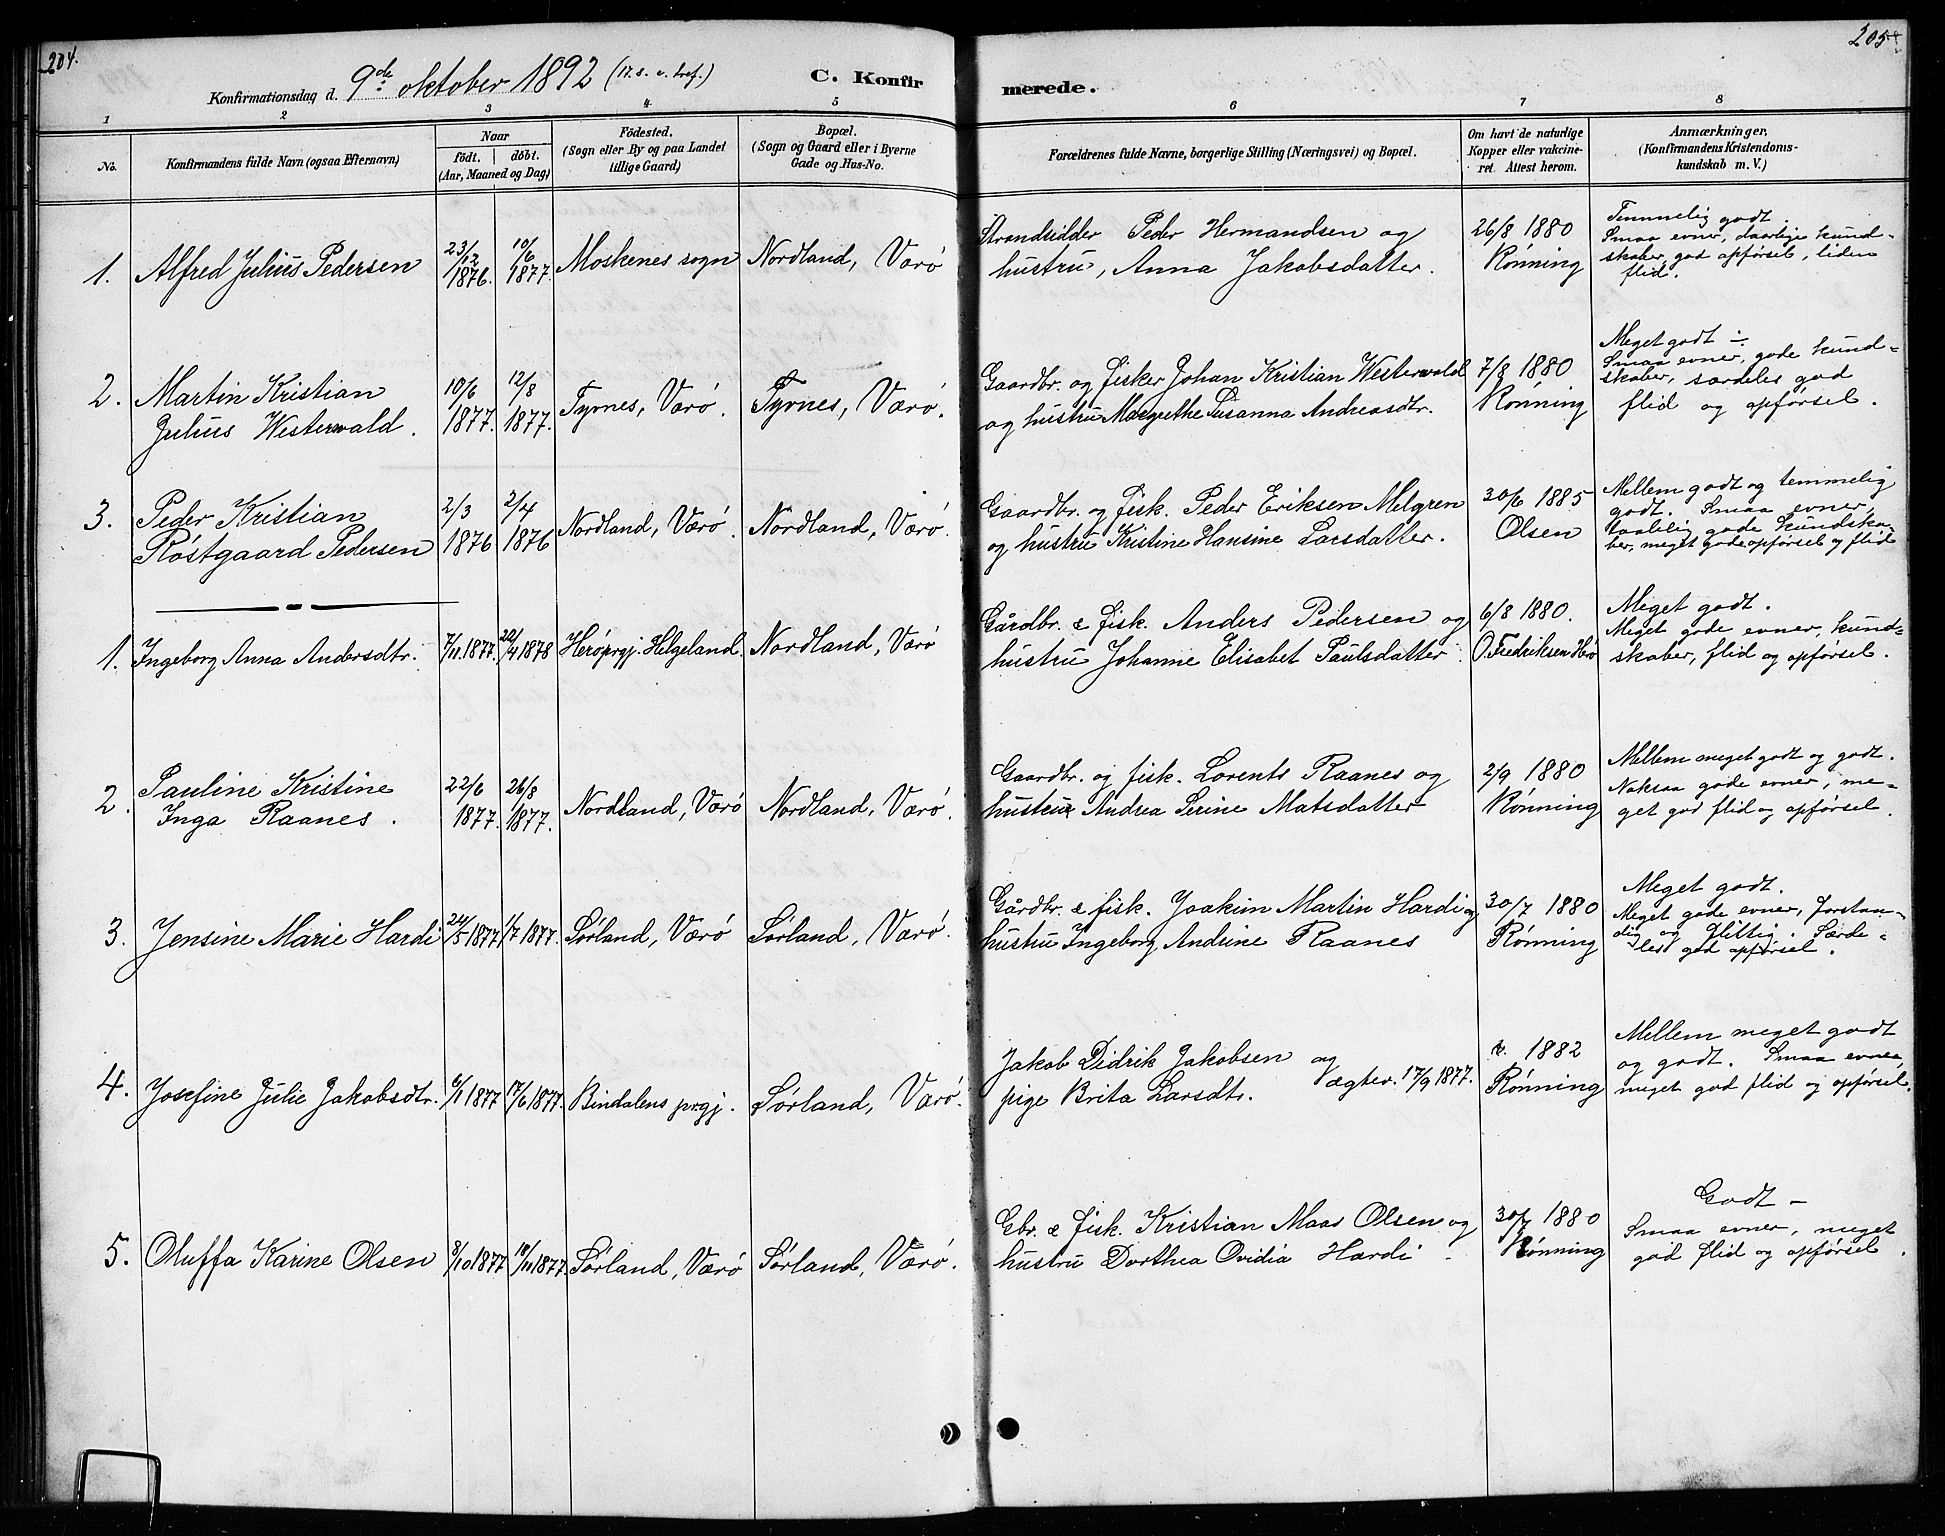 204.
205
Konfirmationsdag d. 9de oktober 1892 (17. s. e. tref.)
C. Konfirmerede.
1 2 3 4 5 6 7 8
No.
Konfirmandens fulde Navn (ogsaa Efternavn)
Naar
födt. döbt.
(Aar, Maaned og Dag)
Födested.
(Sogn eller By og paa Landet
tillige Gaard)
Bopæl.
(Sogn og Gaard eller i Byerne
Gade og Hus-No.
Forældrenes fulde Navne, borgerlige Stilling (Næringsvei) og Bopæl.
Om havt de naturlige
Kopper eller vakcine-
ret. Attest herom.
Anmærkninger.
(Konfirmandens Kristendoms-
kundskab m. V.)
1. Alfred Julius Pedersen
23/12 1876. 10/6 1877.
Moskenes sogn
Nordland, Værö
Strandsidder Peder Hermandsen og
hustru, Anna Jakobsdatter.
26/8 1880
Rönning
Temmelig godt.
Smaa evner, daarlige kund-
skaber, god opförsel, liden
flid.
2. Martin Kristian
Julius Westerwald.
10/6 1877. 12/8 1877.
Tyvnes, Værö.
Tyvnes, Værö.
Gaardbr. og fisker Johan Kristian Westerwald
og hustru Margrethe Susanna Andreasdtr.
7/8 1880
Rönning
Meget godt ÷
Smaa evner, gode kund-
skaber, særdeles god
flid og opförsel.
3. Peder Kristian
Röstgaard Pedersen
2/3 1876 2/4 1876
Nordland, Værö.
Nordland, Værö.
Gaardbr. og fisk. Peder Eriksen Melgren
og hustru Kristine Hansine Larsdatter.
30/6 1885
Olsen
Mellem godt og temmelig
godt. Smaa evner,
taalelig gode kundska-
ber, meget gode opförsel og flid
1. Ingeborg Anna Andersdtr.
7/11 1877. 22/4 1878
Heröprgj. Helgeland.
Nordland, Værö
Gårdbr. & fisk. Anders Pedersen og
hustru Johanne Elisabet Paulsdatter.
6/8 1880.
O. Fredriksen
Meget godt.
Meget gode evner, kund-
skaber, flid og opförsel.
2. Pauline Kristine
Inga Raanes.
22/6 1877. 26/8 1877.
Nordland, Værö
Nordland, Værö.
Gaardbr. og fisk. Lorents Raanes og
hustru Andrea Serine Matsdatter
2/9 1880
Rönning
Mellem meget godt og godt.
Noksaa gode evner, me-
get god flid og opförsel.
3. Jensine Marie Hardi
24/5 1877 1/7 1877.
Sörland, Værö
Sörland, Værö.
Gårdbr. & fisk. Joakim Martin Hardi og
hustru Ingeborg Andrine Raanes
30/7 1880
Rönning
Meget godt.
Meget gode evner, forstan-
dig og flittig. Særde-
les god opförsel.
4. Josefine Julie Jakobsdtr.
6/1 1877 17/6 1877.
Bindalens prgj.
Sörland, Værö.
Jakob Didrik Jakobsen og
pige Brita Larsdtr. ægtev. 17/9 1877.
1882
Rönning
Mellem meget godt
og godt. Smaa evner,
meget god flid og opförsel.
5. Oluffa Karine Olsen
8/10 1877 18/11 1877.
Sörland, Værö
Sörland, Værö.
Gbr. & fisk. Kristian Maas Olsen og
hustru Dorthea Ovidia Hardi
30/7 1880
Rönning
Godt –
Smaa evner, meget
god flid og opförsel.